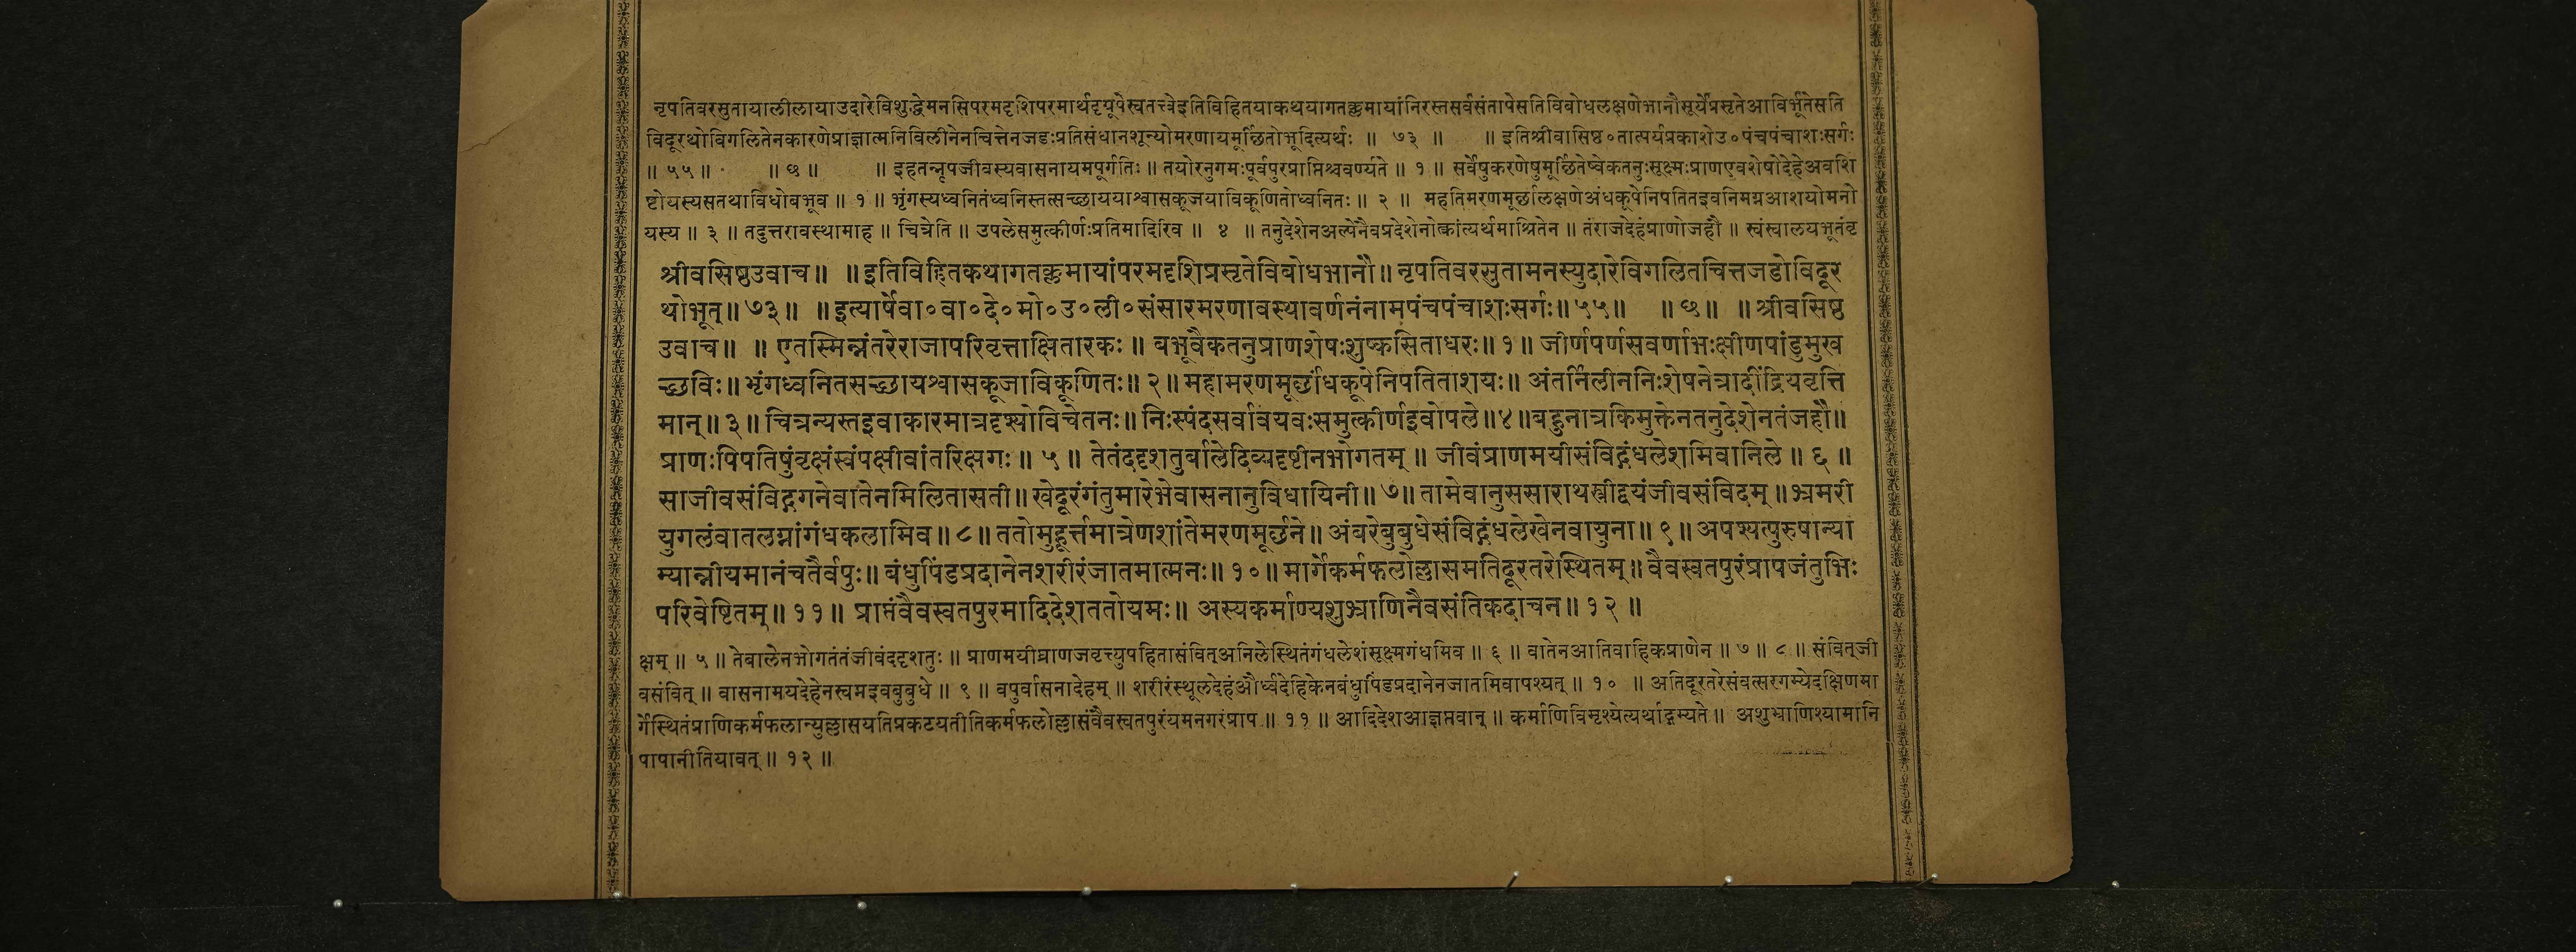 नृपतिवरसुतायालीलायाउदारेविशुद्धेमनसिपरमदृशिपरमार्थदृपूपेस्वतत्त्वेइतिविहितयाकथयागतक्लमायांनिरस्तसर्वसंतापेसतिविबोधलक्षणेभानौसूर्येप्रसृतेआविर्भूतेसति
विदूरथोविगलितेनकारणेप्राज्ञात्मनिविलीनेनचित्तेनजडःप्रतिसंधानशून्योमरणायमूर्छितोभूदित्यर्थः ॥ ७३ ॥ ॥ इतिश्रीवासिष्ठ०तात्पर्यप्रकाशेउ०पंचपंचाशःसर्गः
॥ ५५ ॥ ॥ छ ॥ ॥ इहतन्नृपजीवस्यवासनायमपूर्गतिः ॥ तयोरनुगमःपूर्वपुरप्राप्तिश्चवर्ण्यते ॥ १ ॥ सर्वेषुकरणेषुमूर्छितेष्वेकतनुःसूक्ष्मःप्राणएवशेषोदेहेअवशि
ष्टोयस्यसतथाविधोबभूव ॥ १ ॥ भृंगस्यध्वनितंध्वनिस्तत्सच्छाययाश्वासकूजयाविकूणितोध्वनितः ॥ २ ॥ महतिमरणमूर्छालक्षणेअंधकूपेनिपतितइवनिमग्नआशयोमनो
यस्य ॥ ३ ॥ तदुत्तरावस्थामाह ॥ चित्रेति ॥ उपलेसमुत्कीर्णःप्रतिमादिरिव ॥ ४ ॥ तनुदेशेनअल्पेनैवप्रदेशेनोत्क्रांत्यर्थमाश्रितेन ॥ तंराजदेहंप्राणोजहौ ॥ स्वंस्वालयभूतंवृ
श्रीवसिष्ठउवाच॥ ॥इतिविहितकथागतक्लमायांपरमदृशिप्रसृतेविबोधभानौ॥नृपतिवरसुतामनस्युदारेविगलितचित्तजडोविदूर
थोभूत्॥७३॥ ॥इत्यार्षेवा०वा०दे०मो०उ०ली०संसारमरणावस्थावर्णनंनामपंचपंचाशःसर्गः॥५५॥ ॥छ॥ ॥श्रीवसिष्ठ
उवाच॥ ॥एतस्मिन्नंतरेराजापरिवृत्ताक्षितारकः॥बभूवैकतनुप्राणशेषःशुष्कसिताधरः॥१॥जीर्णपर्णसवर्णाभःक्षीणपांडुमुख
च्छविः॥भृंगध्वनितसच्छायश्वासकूजाविकूणितः॥२॥महामरणमूर्छांधकूपेनिपतिताशयः॥अंतर्निलीननिःशेषनेत्रादींद्रियवृत्ति
मान्॥३॥चित्रन्यस्तइवाकारमात्रदृश्योविचेतनः॥निःस्पंदसर्वावयवःसमुत्कीर्णइवोपले॥४॥बहुनात्रकिमुक्तेनतनुदेशेनतंजहौ॥
प्राणःपिपतिषुंवृक्षंस्वंपक्षीवांतरिक्षगः॥५॥तेतंददृशतुर्बालेदिव्यदृष्टीनभोगतम्॥जीवंप्राणमयीसंविद्गंधलेशमिवानिले॥६॥
साजीवसंविद्गगनेवातेनमिलितासती॥खेदूरंगंतुमारेभेवासनानुविधायिनी॥७॥तामेवानुससाराथस्त्रीद्वयंजीवसंविदम्॥भ्रमरी
युगलंवातलग्नांगंधकलामिव॥८॥ततोमुहूर्त्तमात्रेणशांतेमरणमूर्छने॥अंबरेबुबुधेसंविद्गंधलेखेनवायुना॥९॥अपश्यत्पुरुषान्या
म्यान्नीयमानंचतैर्वपुः॥बंधुपिंडप्रदानेनशरीरंजातमात्मनः॥१०॥मार्गेकर्मफलोल्लासमतिदूरतरेस्थितम्॥वैवस्वतपुरंप्रापजंतुभिः
परिवेष्टितम्॥११॥प्राप्तंवैवस्वतपुरमादिदेशततोयमः॥अस्यकर्माण्यशुभ्राणिनैवसंतिकदाचन॥१२॥
क्षम् ॥ ५ ॥ तेबालेनभोगतंतंजीवंददृशतुः ॥ प्राणमयीघ्राणजवृत्त्युपहितासंवित्अनिलेस्थितंगंधलेशंसूक्ष्मगंधमिव ॥ ६ ॥ वातेनआतिवाहिकप्राणेन ॥ ७ ॥ ८ ॥ संवित्जी
वसंवित् ॥ वासनामयदेहेनस्वप्नइवबुबुधे ॥ ९ ॥ वपुर्वासनादेहम् ॥ शरीरंस्थूलदेहंऔर्ध्वदेहिकेनबंधुपिंडप्रदानेनजातमिवापश्यत् ॥ १० ॥ अतिदूरतरेसंवत्सरगम्येदक्षिणमा
र्गेस्थितंप्राणिकर्मफलान्युल्लासयतिप्रकटयतीतिकर्मफलोल्लासंवैवस्वतपुरंयमनगरंप्राप ॥ ११ ॥ आदिदेशआज्ञप्तवान् ॥ कर्माणिविमृश्येत्यर्थाद्गम्यते ॥ अशुभ्राणिश्यामानि
पापानीतियावत् ॥ १२ ॥